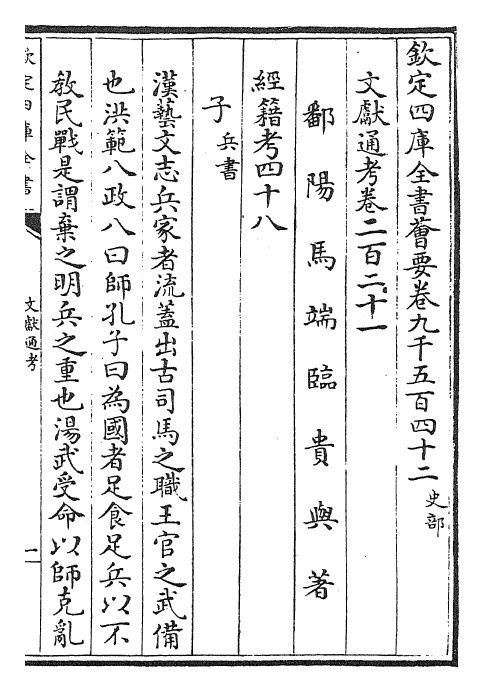 欽定四庫全書薈要卷九千五百四十二 史部
文獻通考卷二百二十一
鄱陽馬端臨貴與著
經籍考四十八
子 兵書
漢藝文志兵家者流蓋出古司馬之職王官之武備
也洪範八政八曰師孔子曰為國者足食足兵以不
敎民戰是謂棄之明兵之重也湯武受命以師克亂
欽定四庫全書
文獻通考
一